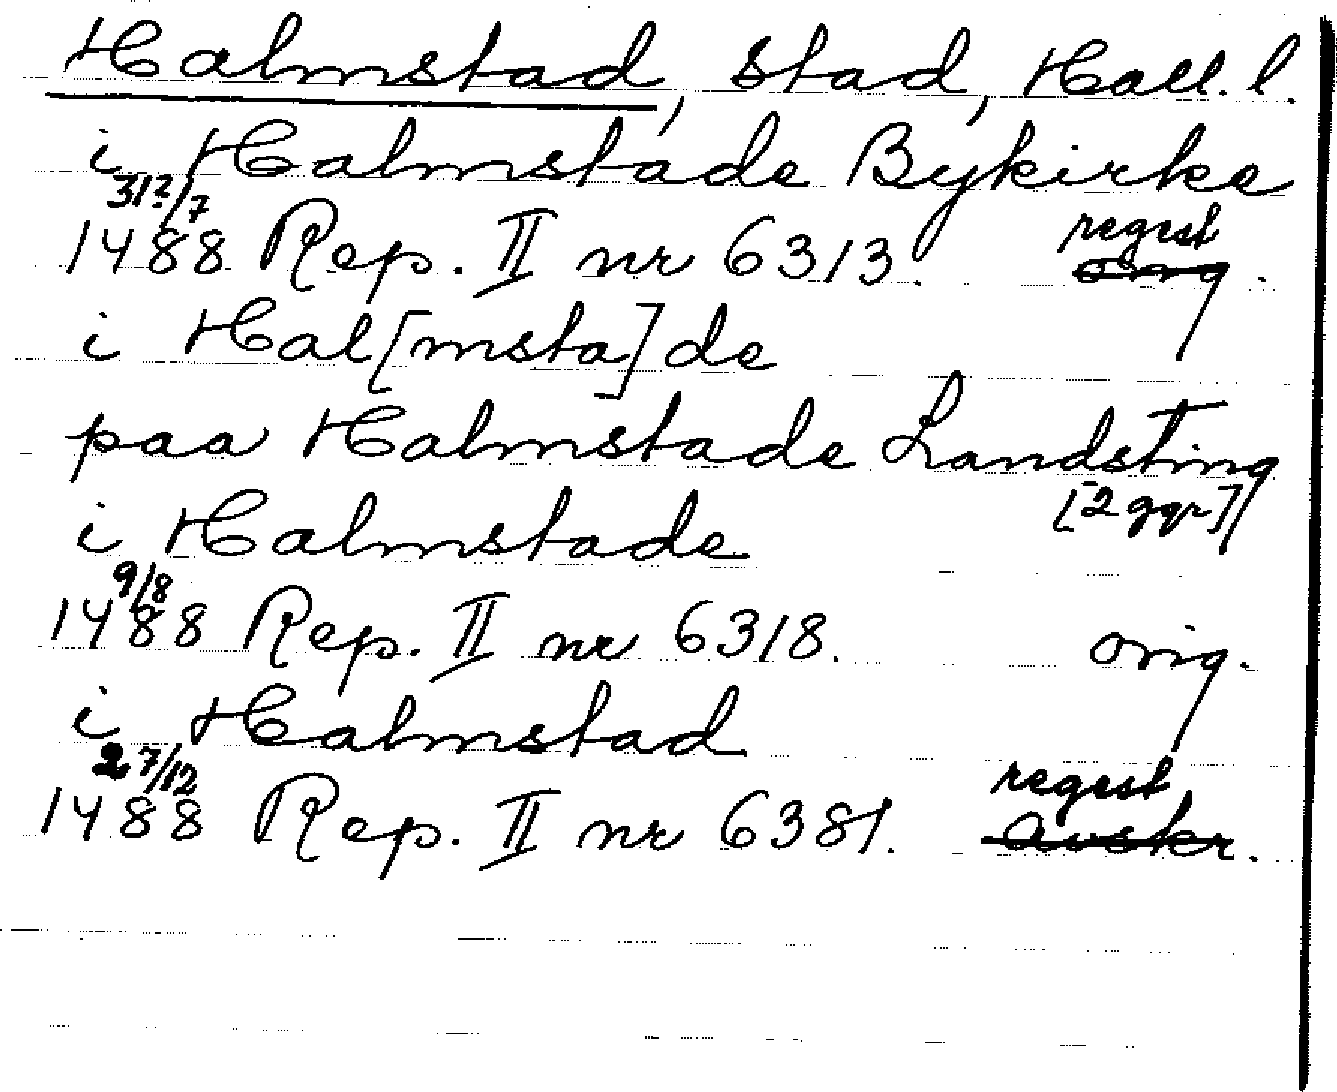 Halmstad, stad, Hall. l.
i Halmstade Bykirke
31?/7
1488 Rep. II nr 6313. regest orig.
i Hal[msta]de
paa Halmstade Landsting
i Halmstade [2 ggr]
9/8
1488 Rep. II nr 6318. orig.
i Halmstad
27/12
1488 Rep. II nr 6381. regest avskr.